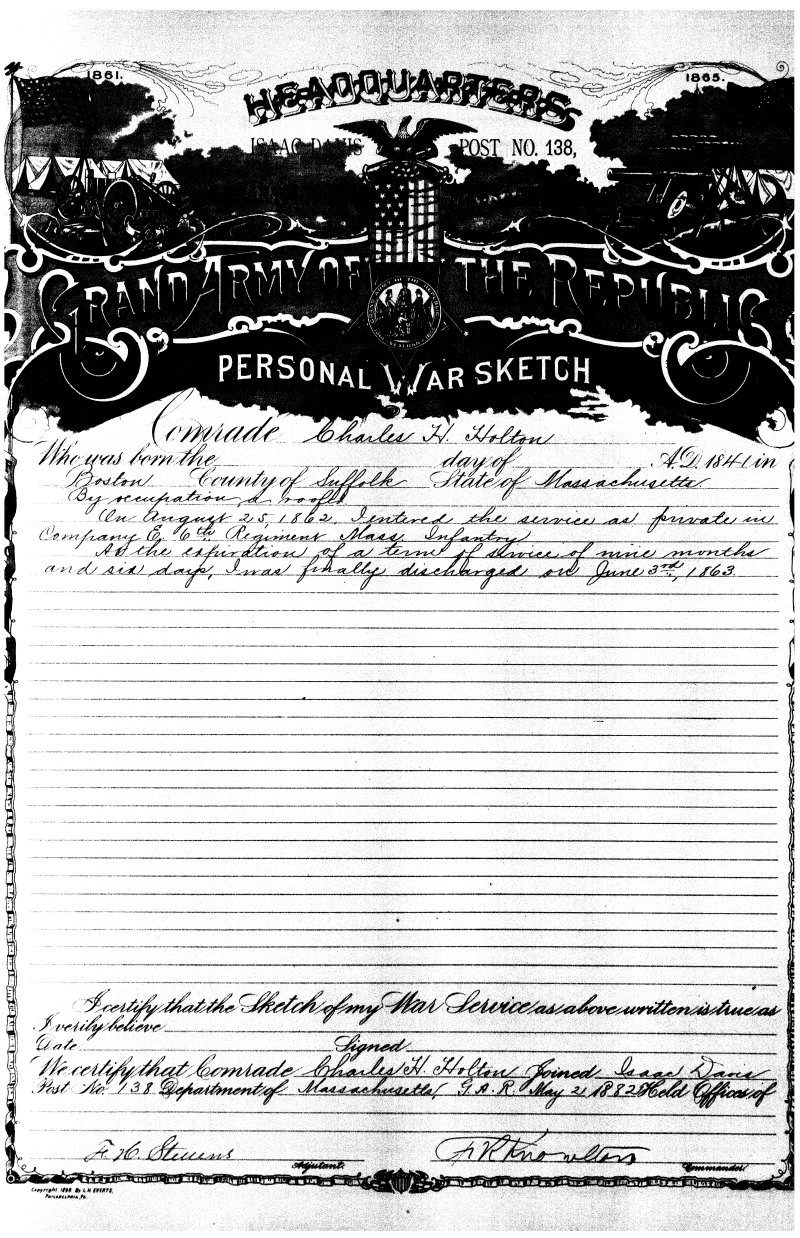 1861.
1865.
HEADQUARTERS
ISAAC DAVIS POST NO. 138,
GRAND ARMY OF THE REPUBLIC
PERSONAL WAR SKETCH
Comrade Charles H. Holton
Who was born the day of A.D. 1841 in
Boston County of Suffolk State of Massachusetts
By occupation a
On August 25, 1862, I entered the service as private in
Company E, 6th Regiment Mass. Infantry
At the expiration of a term of service of nine months
and six days, I was finally discharged on June 3rd, 1863.
I certify that the Sketch of my War Service as above written is true as
I verily believe
Date Signed
We certify that Comrade Charles H. Holton Joined Isaac Davis
Post No. 138 Department of Massachusetts, G.A.R. May 2 1882 Held Offices of
F. H. Stevens
Knowlton
Adjutant.
Commander.
Copyright By L.H. EVERTS,
PHILADELPHIA, PA.